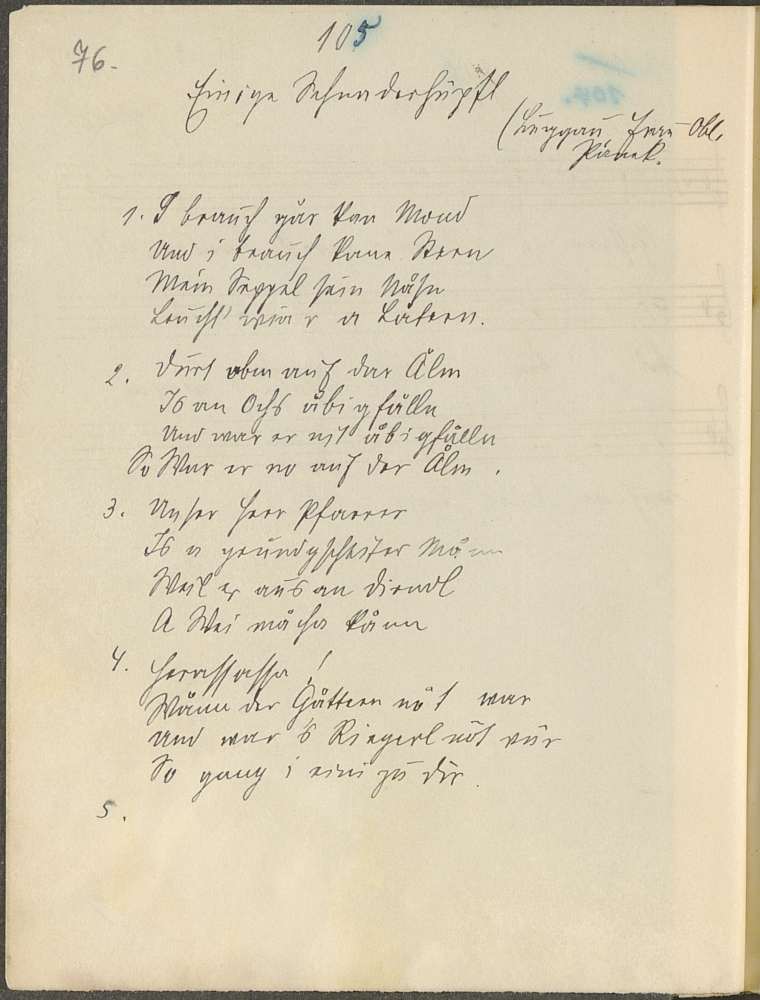 105
76.
Einige Schnaderhüpfl
(Luggau Frau Obl.
Panek.
1. I brauch går kan Mond
Und i brauch kane Stern
Mein Seppel sein Nåsn
Leucht' wia r a Låtern.
2. Durt obm auf der Ålm
Is an Ochs åbigfålln
Und war er nit åbigfålln
So war er no auf der Ålm.
3. Unser Herr Pfarrer
Is a grundgscheiter Månn
Weil er aus an Diendl
A Wei måcha kånn
4. Herassassa!
Wånn der Gåttern nöt war
Und war 's Riegerl nöt vür
So gang i eini zu dir.
5.